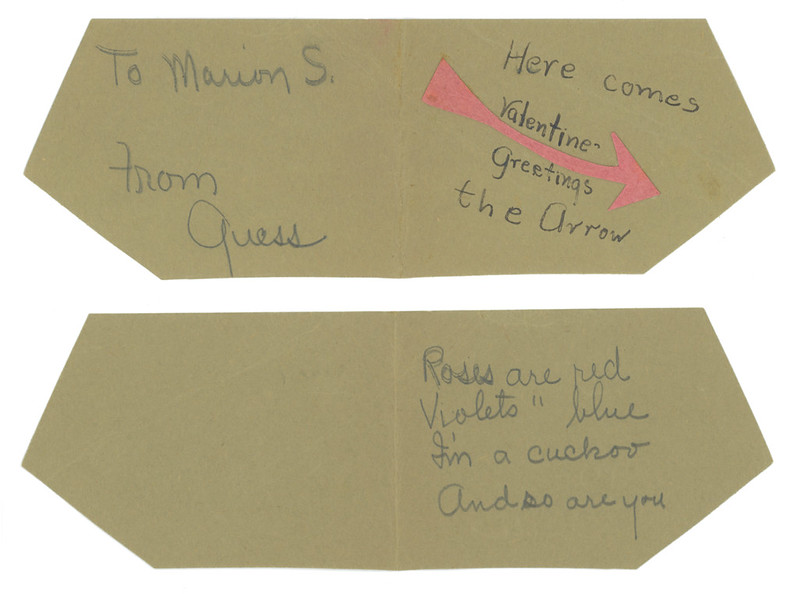 To Marion S.
From
Guess
Here comes
Valentine-
greetings
the Arrow
Roses are red
Violets " blue
I'm a cuckoo
And so are you